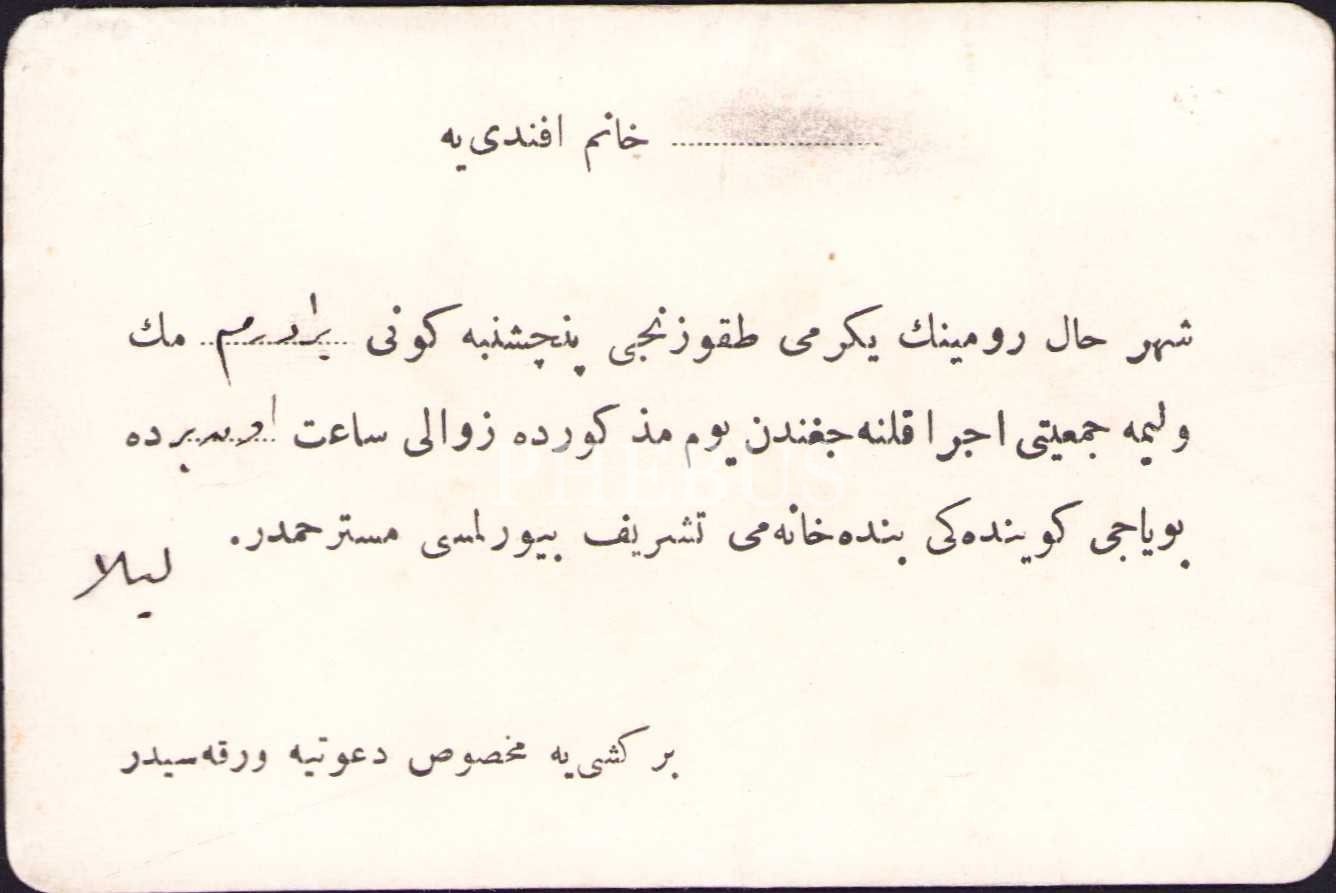 خانم افندی‌یه
شهر حال رومینك یكرمی طقوزنجی پنچشنبه كونی برادرم مك
ولیمه جمعیتی اجرا قلنه‌جغندن یوم مذكورده زوالی ساعت اون برده
بویاجی كوینده‌كی بنده‌خانه‌می تشریف بیورلمسی مسترحمدر.
لیلا
بر كشی‌یه مخصوص دعوتیه ورقه‌سیدر
PHEBUS